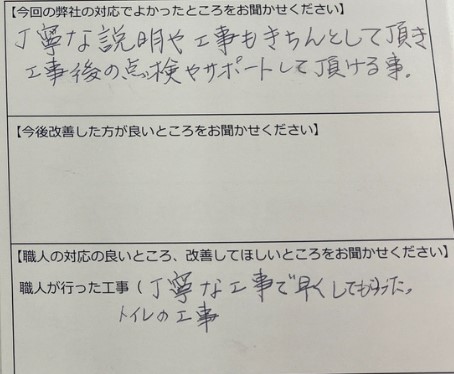 【今回の弊社の対応でよかったところをお聞かせください】
丁寧な説明や工事もきちんとして頂き
工事後の点検やサポートして頂ける事.
【今後改善した方が良いところをお聞かせください】
【職人の対応の良いところ、改善してほしいところをお聞かせください】
職人が行った工事 ( 丁寧な工事で早くしてもらった。
トイレの工事